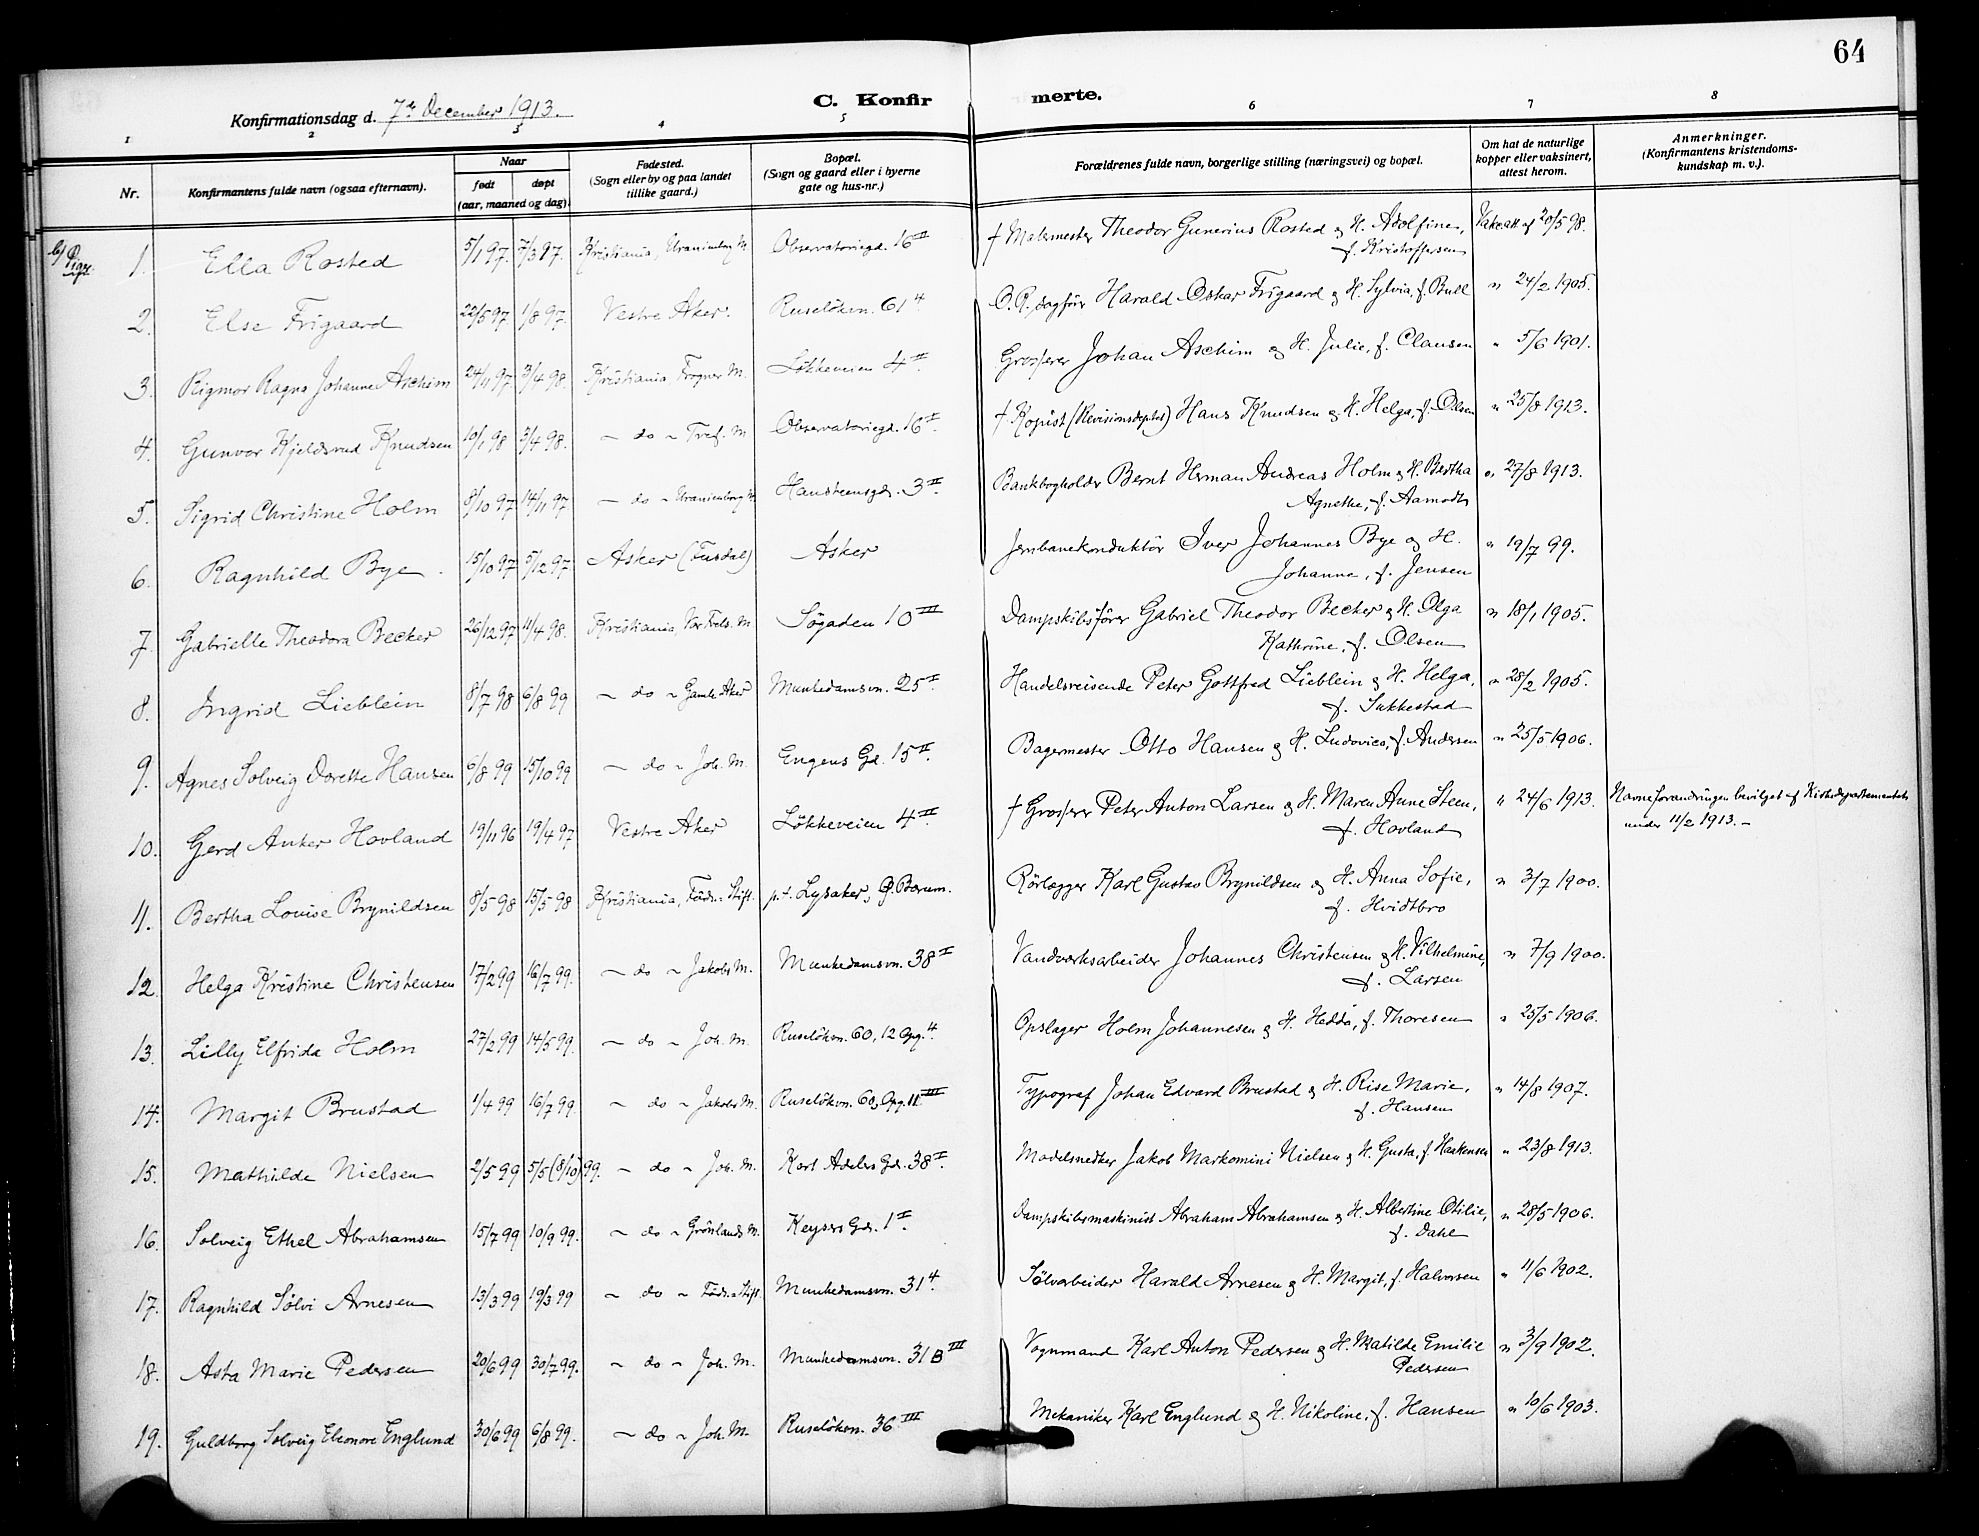 64
C. Konfirmerte.
Konfirmationsdag d. 7de December 1913.
1 2 3 4 5 6 7 8
Nr. Konfirmantens fulde navn (ogsaa efternavn). Naar født døpt (aar, maaned og dag). Fødested. (Sogn eller by og paa landet tillike gaard.) Bopæl. (Sogn og gaard eller i byerne gate og hus-nr.) Forældrenes fulde navn, borgerlige stilling (næringsvei) og bopæl. Om hat de naturlige kopper eller vaksinert, attest herom. Anmerkninger. (Konfirmantens kristendoms-kundskap m. v.).
b) Piger
1. Ella Rosted 5/1 97. 7/3 97. Kristiania, Uranienborg M. Observatoriegd. 16 II † Malermester Theodor Gunerius Rosted & H. Adolfine, f. Kristoffersen Vakc.att. af 20/5 98.
2. Else Frigaard 22/5 97 1/8 97. Vestre Aker. Ruseløkvn. 61 4 O.R.sagfører Harald Oskar Frigaard & H. Sylvia, f. Bull " 24/2 1905.
3. Rigmor Ragna Johanne Aschim 24/11 97 3/4 98. Kristiania, Frogner M. Løkkeveien 4 II Grosserer Johan Aschim & H. Julie, f. Clausen " 5/6 1901.
4. Gunvor Kjeldsrud Knudsen 19/1 98 3/4 98. - do - Tref. M Observatoriegd. 16 II † Kopist (Revisionsdeptet) Hans Knudsen & H. Helga, f. Olsen " 25/8 1913.
5. Sigrid Christine Holm 8/10 97 14/11 97 - do - Uranienborg M Hansteensgd. 3 II Bankbogholder Bernt Herman Andreas Holm & H. Bertha Agnethe, f. Aamodt " 27/8 1913.
6. Ragnhild Bye. 15/10 97 5/12 97 Asker (Fusdal) Asker Jernbanekonduktør Iver Johannes Bye og H. Johanne, f. Jensen " 19/7 99.
7. Gabrielle Theodora Becker 26/12 97 11/4 98. Kristiania, Vor Frels. M Søgaden 10 III Dampskibsfører Gabriel Theodor Becker & H. Olga Kathrine, f. Olsen " 18/1 1905.
8. Ingrid Lieblein 8/7 98 6/8 99 - do - Gamle Aker Munkedamsvn. 25 I Handelsreisende Peter Gottfred Lieblein & H. Helga, f. Sukkestad " 28/2 1905.
9. Agnes Solveig Dorette Hansen 6/8 99 15/10 99 - do - Joh. M. Engens Gd. 15 II Bagermester Otto Hansen & H. Ludovica, f. Andersen " 25/5 1906.
10. Gerd Anker Hovland 19/11 96 19/4 97 Vestre Aker Løkkeveien 4 III † Grosserer Peter Anton Larsen & H. Maren Anne Steen, f. Hovland " 24/6 1913. Navneforandringen bevilget af Kirkedepartementet under 11/2 1913.-
11. Bertha Louise Brynildsen 8/5 98 15/5 98 Kristiania, Føds.-Stift. p.t. Lysaker, Ø. Bærum. Rørlægger Karl Gustav Brynildsen og H. Anna Sofie, f. Hvidtbro " 3/7 1900.
12. Helga Kristine Christensen 17/2 99 16/7 99. - do - Jakobs M. Munkedamsvn. 38 I Vandværksarbeider Johannes Christensen & H. Vilhelmine, f. Larsen " 7/9 1900.
13. Lilly Elfrida Holm 27/2 99 14/5 99. - do - Joh. M. Ruseløkvn. 60, 12 Opg. 4. Opslager Holm Johannesen & H. Hedda, f. Thoresen " 25/5 1906.
14. Margit Brustad 1/4 99 16/7 99. - do - Jakobs M. Ruseløkvn. 60, Opg. 11 III Typograf Johan Edvard Brustad & H. Rise Marie, f. Hansen " 14/8 1907.
15. Mathilde Nielsen 2/5 99 5/5 (8/10) 99. - do - Joh. M. Kort Adelers Gd. 38 I Modelsnedker Jakob Markomini Nielsen & H. Gusta, f. Haakensen " 23/8 1913.
16. Solveig Ethel Abrahamsen 15/7 99 10/9 99. - do - Grønlands M. Keysers Gd. 1 I Dampskibsmaskinist Abraham Abrahamsen & H. Albertine Otilie, f. Dahl " 28/5 1906.
17. Ragnhild Sølvi Arnesen 13/3 99 19/3 99 - do - Føds.-Stift. Munkedamsvn. 31 4. Sølvarbeider Harald Arnesen & H. Margit, f. Halvorsen " 11/6 1902.
18. Asta Marie Pedersen 20/6 99 30/7 99. - do - Joh. M. Munkedamsvn. 31 B III Vognmand Karl Anton Pedersen & H. Matilde Emilie Pedersen " 3/9 1902.
19. Guldborg Solveig Eleonore Englund 30/6 99 6/8 99. - do - Joh. M. Ruseløkvn. 36 III Mekaniker Karl Englund & H. Nikoline, f. Hansen " 10/6 1903.